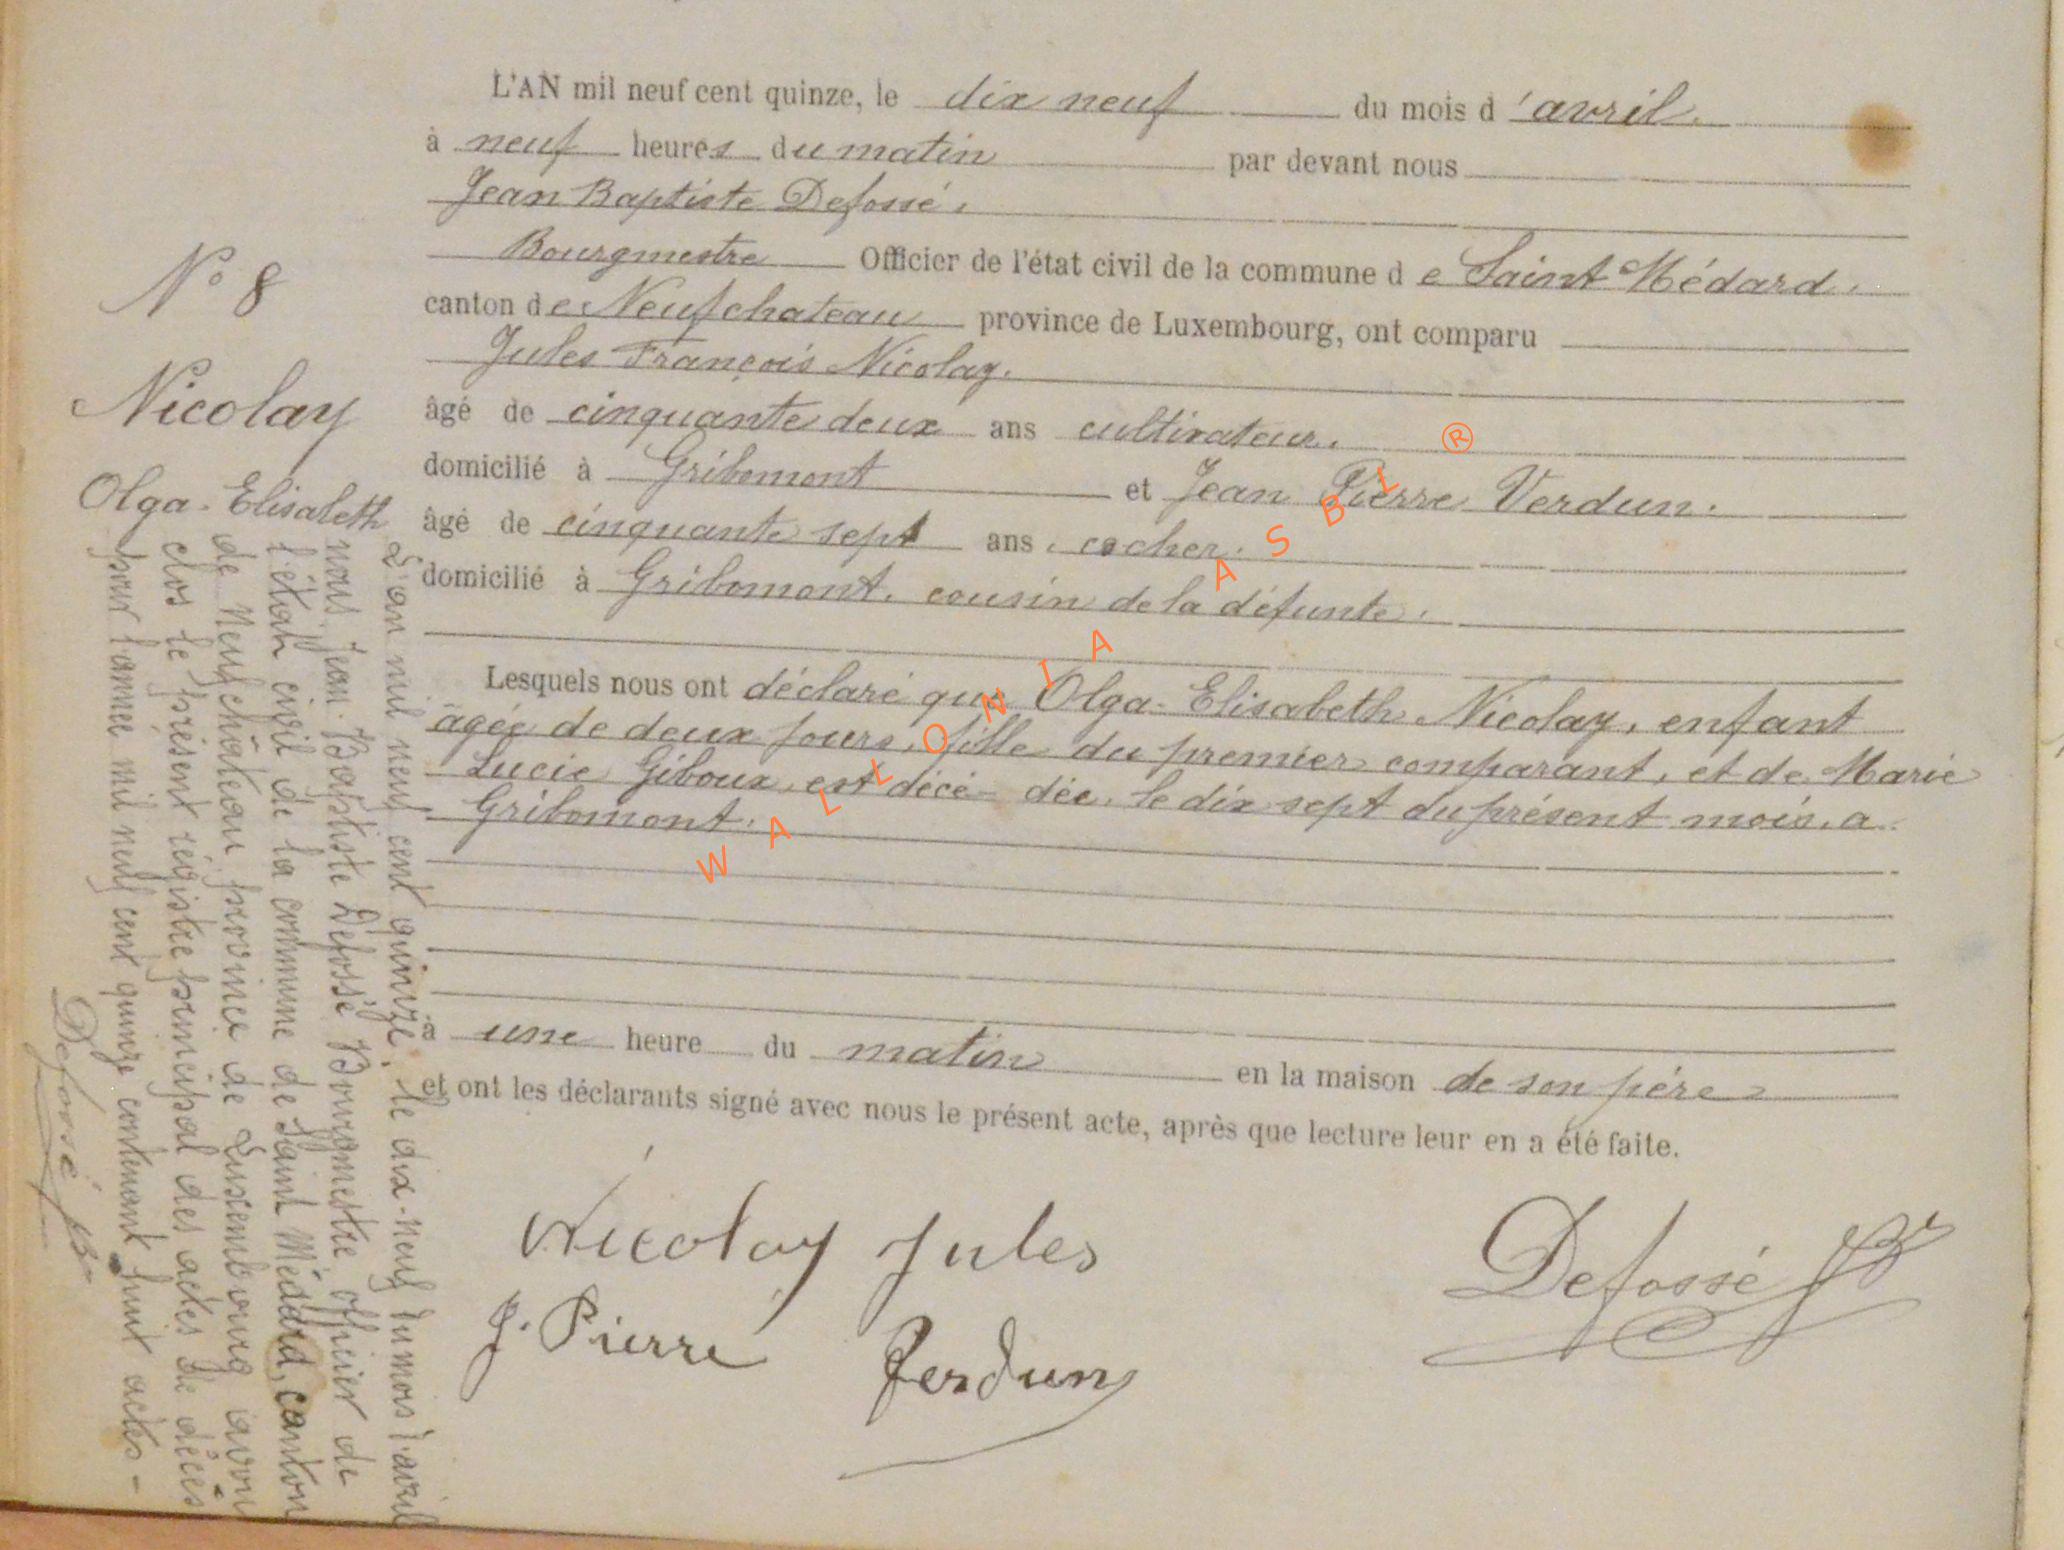 L'AN mil neuf cent quinze, le dix neuf du mois d'avril.
à neuf heures du matin par devant nous
Jean Baptiste Defossé.
Bourgmestre Officier de l'état civil de la commune de Saint Médard.
canton de Neufchateau province de Luxembourg, ont comparu
Jules François Nicolay.
âgé de cinquante deux ans cultivateur.
domicilié à Gribomont et Jean Pierre Verdun.
âgé de cinquante sept ans, cocher.
domicilié à Gribomont, cousin de la défunte.
Lesquels nous ont déclaré que Olga-Elisabeth Nicolay, enfant
âgée de deux jours, fille du premier comparant, et de Marie
Lucie Giboux, est décé- dée, le dix sept du présent mois, a
Gribomont.
à une heure du matin en la maison de son père
et ont les déclarants signé avec nous le présent acte, après que lecture leur en a été faite.
Nicolay Jules
J. Pierre Verdun
Defossé JB
N° 8
Nicolay
Olga-Elisabeth
L'an mil neuf cent quinze, le dix-neuf du mois d'avril
nous, Jean-Baptiste Defossé Bourgmestre officier de
l'état civil de la commune de Saint Médard, canton
de Neufchâteau province de Luxembourg avons
clos le présent registre principal des actes de décès
pour l'année mil neuf cent quinze contenant huit actes -
Defossé JB
WALLONIA ASBL ®